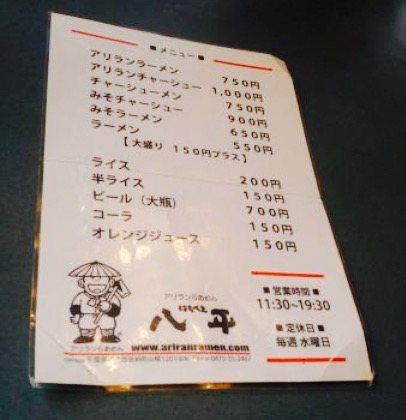 ■ メニュー ■
アリランラーメン 750円
アリランチャーシュー 1,000円
チャーシューメン 750円
みそチャーシュー 900円
みそラーメン 650円
ラーメン 550円
【 大盛り 150円プラス 】
ライス 200円
半ライス 150円
ビール（大瓶） 700円
コーラ 150円
オレンジジュース 150円
■ 営業時間 ■
11:30~19:30
■ 定休日 ■
毎週 水曜日
アリランらあめん
八平
アリランらあめん
www.ariranramen.com